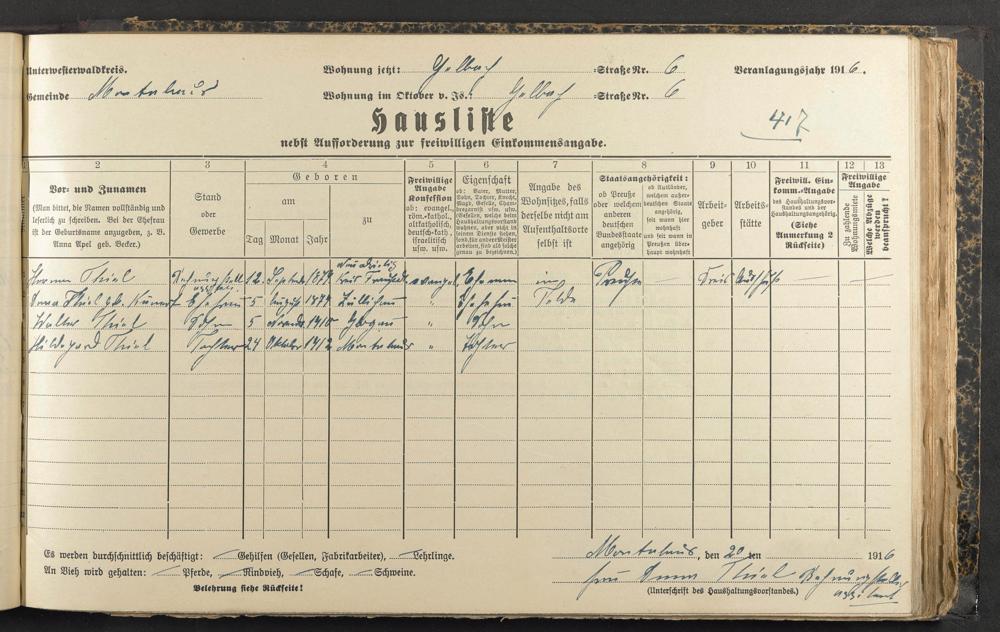 Unterwesterwaldkreis.
Wohnung jetzt: Gelbach =Straße Nr. 6
Veranlagungsjahr 1916.
Gemeinde Montabaur
Wohnung im Oktober v. Js.: Gelbach =Straße Nr. 6
417
Hausliste
nebst Aufforderung zur freiwilligen Einkommensangabe.
2 3 4 5 6 7 8 9 10 11 12 13
Vor- und Zunamen
(Man bittet, die Namen vollständig und
leserlich zu schreiben. Bei der Ehefrau
ist der Geburtsname anzugeben, z. B.
Anna Apel geb. Becker.)
Stand
oder
Gewerbe
Geboren
am
Tag Monat Jahr
zu
Freiwillige
Angabe
Konfession
ob: evangel.,
röm.-kathol.,
altkatholisch,
deutsch-kath.,
israelitisch
usw. usw.
Eigenschaft
ob: Vater, Mutter,
Sohn, Tochter, Knecht,
Magd, Geselle, Cham-
bregarnist usw. usw.
(Gesellen, welche beim
Haushaltungsvorstand
wohnen, aber nicht in
seinem Dienste stehen,
sond. für andere Meister
arbeiten, sind als solche
genau zu bezeichnen.)
Angabe des
Wohnsitzes, falls
derselbe nicht am
Aufenthaltsorte
selbst ist
Staatsangehörigkeit:
ob Preuße
oder welchem
anderen
deutschen
Bundesstaate
angehörig
ob Ausländer,
welchem außer-
deutschen Staate
angehörig,
seit wann hier
wohnhaft
und seit wann in
Preußen über-
haupt wohnhaft
Arbeit-
geber
Arbeits-
stätte
Freiwill. Ein-
komm.-Angabe
des Haushaltungsvor-
standes und der
Haushaltungsangehörig.
(Siehe
Anmerkung 2
Rückseite)
Freiwillige
Angabe
Zu zahlende
Wohnungsmiete
Welche Abzüge
werden
beansprucht?
Thiel 12 September evangel. Ehemann im Preuße Kreis Ausschuß
Anna Thiel geb. Ehefrau 5 August Züllichau Ehefrau Felde
Walter Thiel Sohn 5 1910 Glogau " Sohn
Hildegard Thiel Tochter 24 Oktober 1912 Montabaur " Tochter
Es werden durchschnittlich beschäftigt: Gehilfen (Gesellen, Fabrikarbeiter), Lehrlinge.
An Vieh wird gehalten: Pferde, Rindvieh, Schafe, Schweine.
Belehrung siehe Rückseite!
Montabaur, den 20 ten 1916
Frau Anna Thiel
(Unterschrift des Haushaltungsvorstandes.)